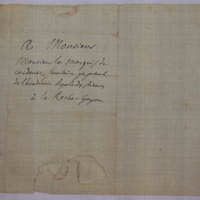 A Monsieur
Monsieur le marquis de
condorcet, secretaire perpetuel
de l'académie royale des sciences
à la Roche-Guyon